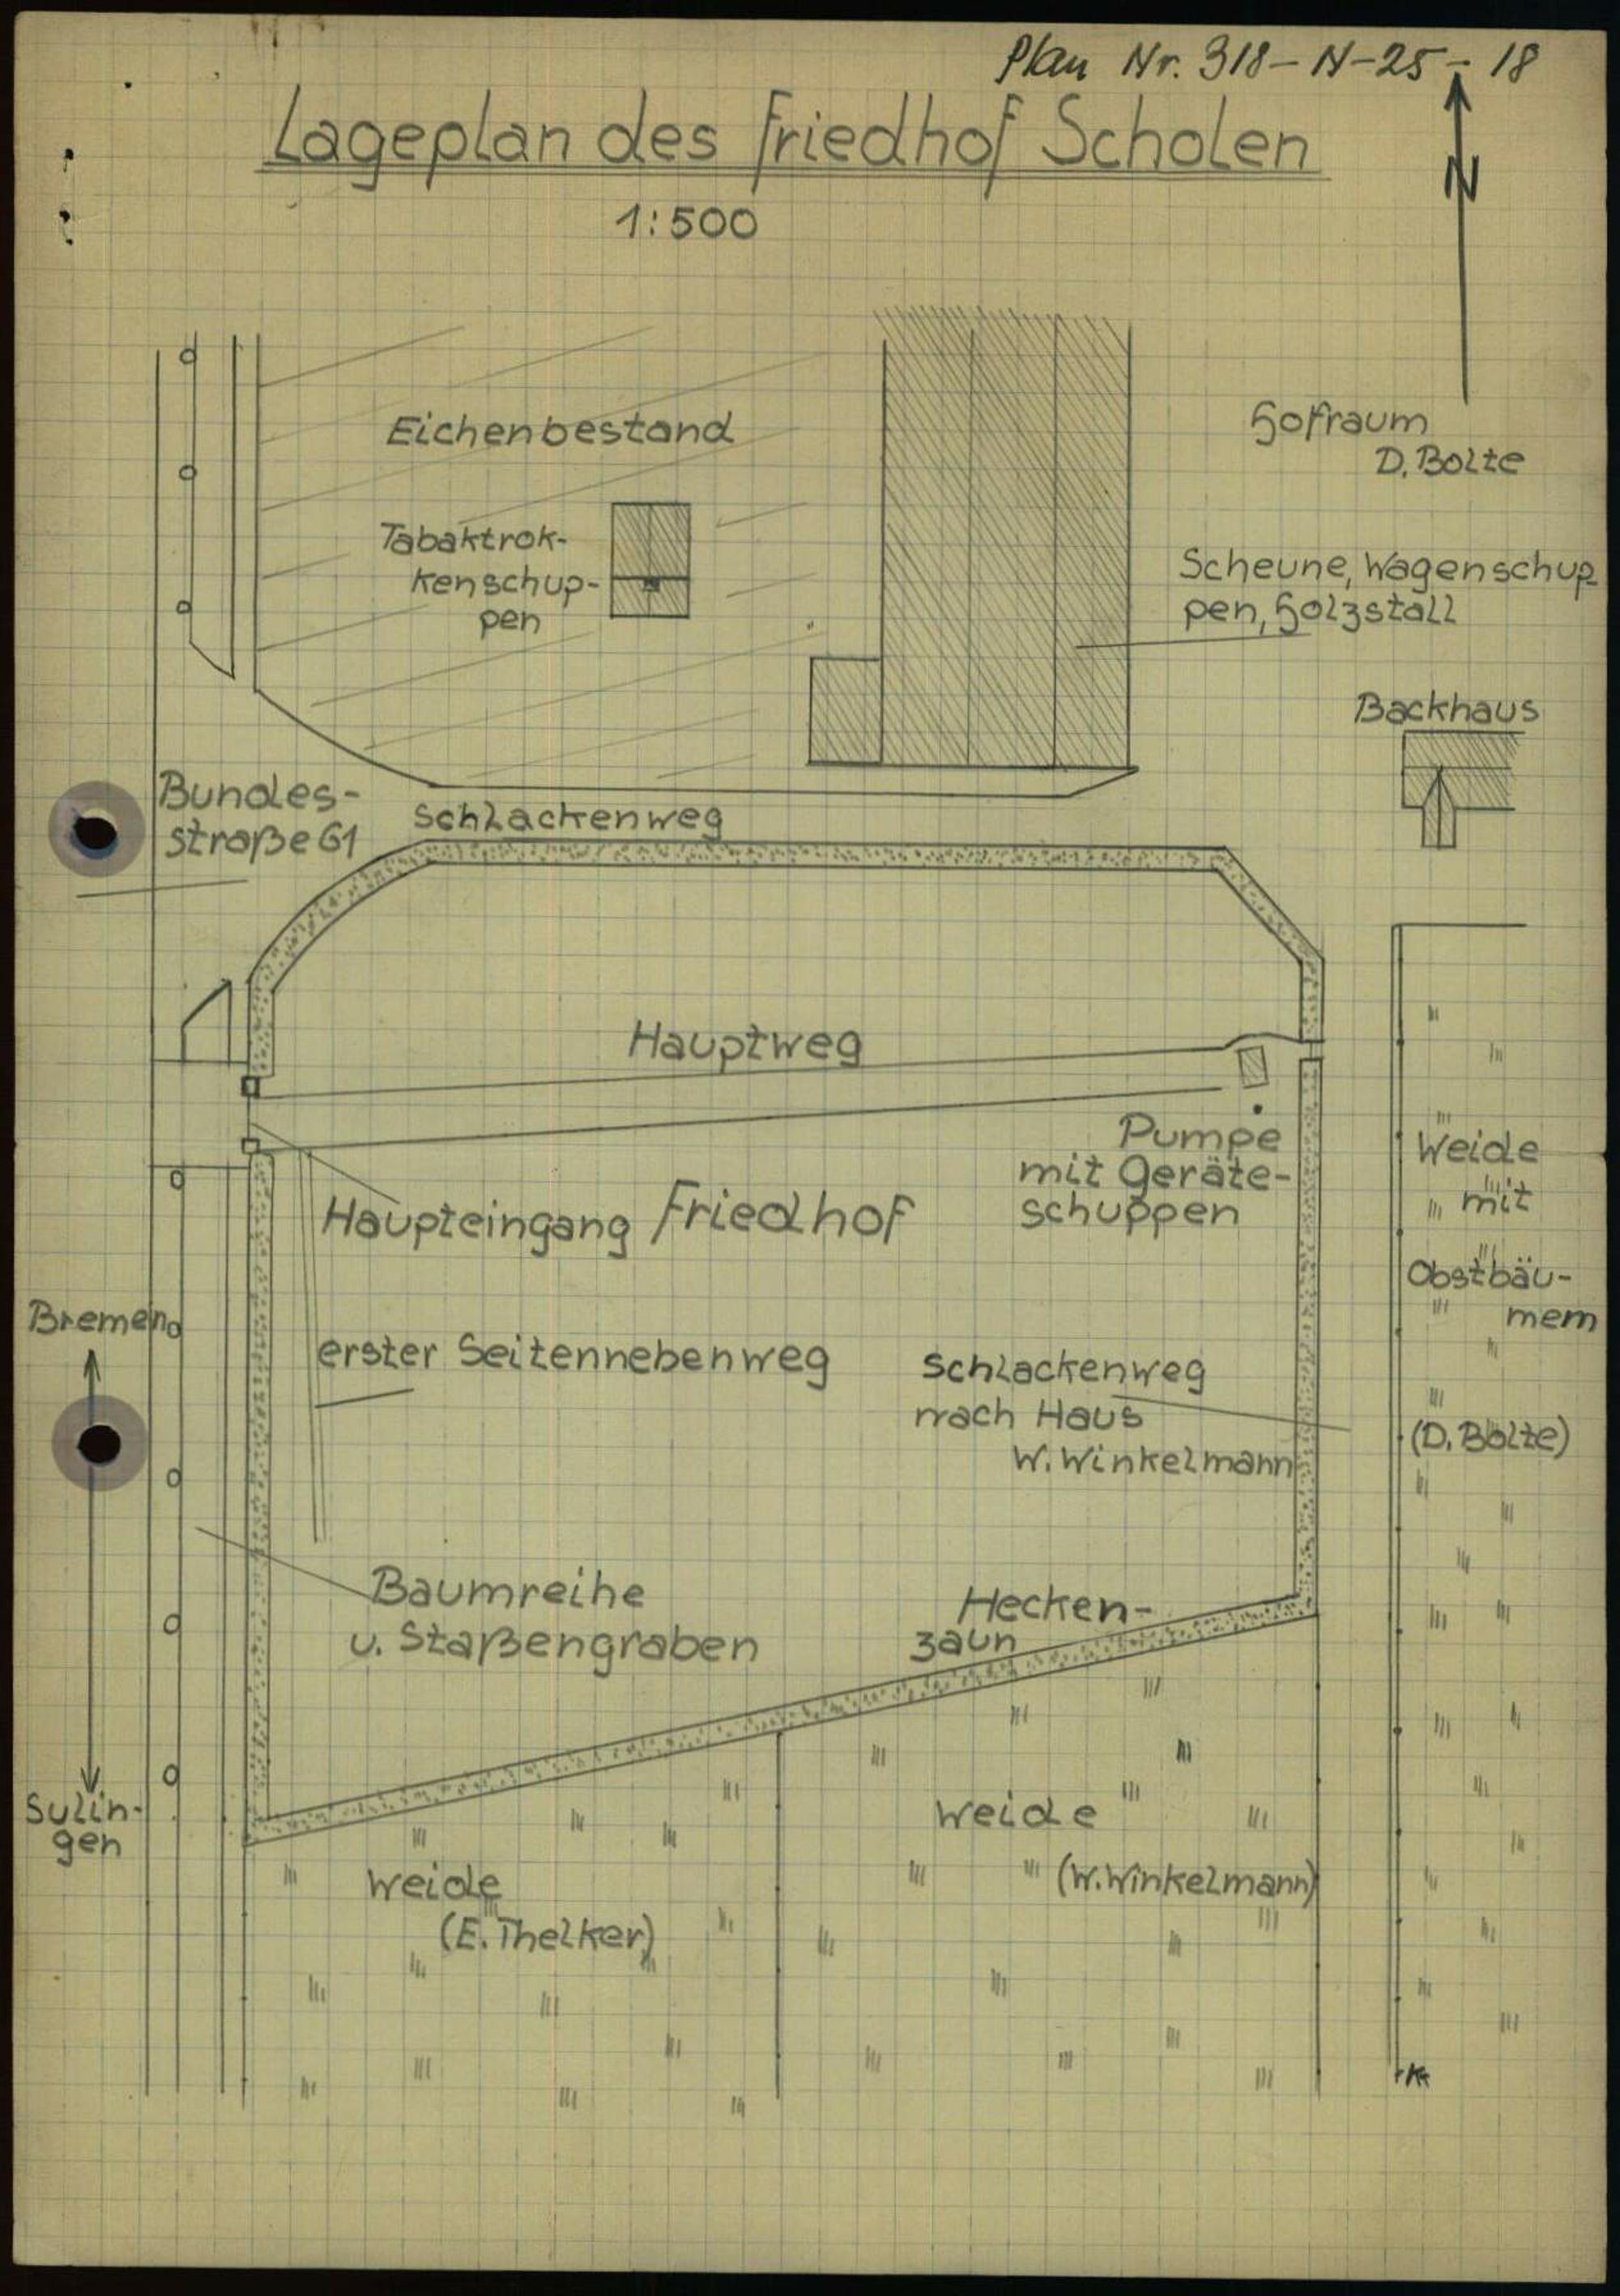 Plan Nr. 318-N-25-18
Lageplan des Friedhof Scholen
1:500
N
Eichenbestand
Hofraum
D. Bolte
Tabaktrok-
kenschup-
pen
Scheune, Wagenschup-
pen, Holzstall
Backhaus
Bundes-
straße 61
Schlackenweg
Hauptweg
Pumpe
mit Geräte-
schuppen
Haupteingang
Friedhof
Weide
mit
Obstbäu-
mem
(D. Bolte)
Bremen
Sulin-
gen
erster Seitennebenweg
Schlackenweg
nach Haus
W. Winkelmann
Baumreihe
u. Staßengraben
Hecken-
zaun
Weide
(E. Thelker)
Weide
(W. Winkelmann)